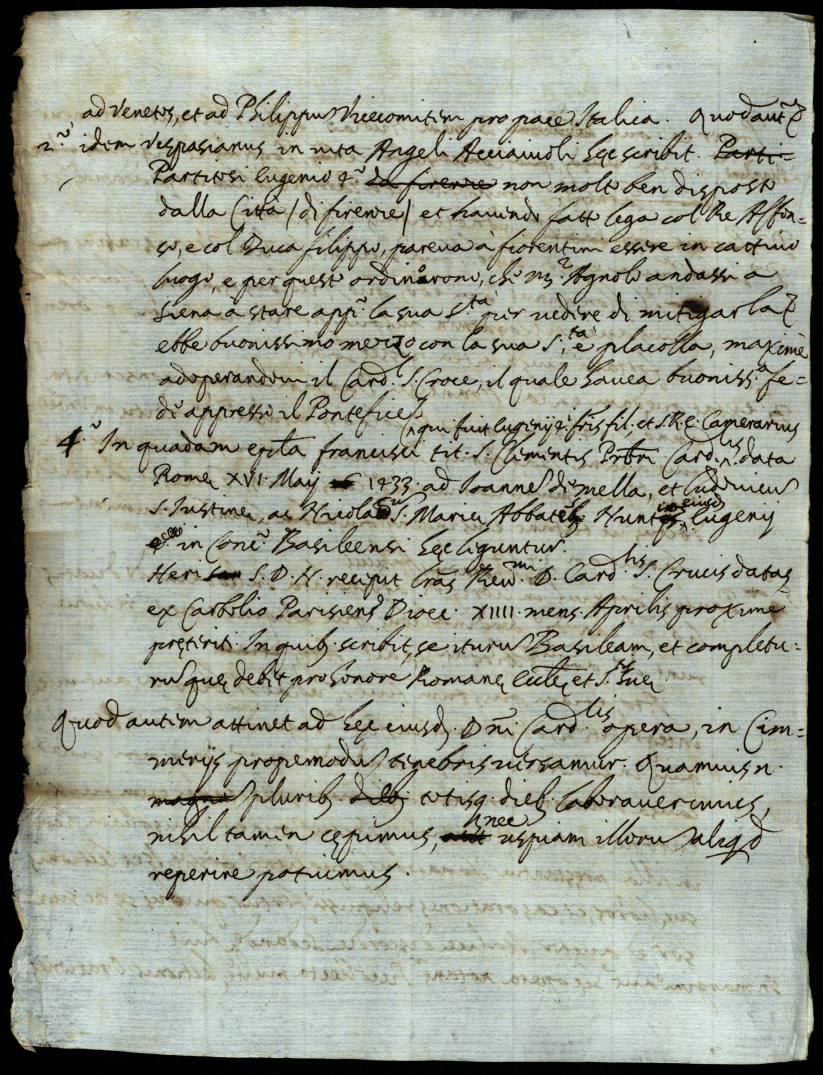 ad Venetos, et ad Philippum Vicecomitem pro pace Italica. Quod aut.
2.º idem Vespasianus in vita Angeli Acciaiuoli hęc scribit. Parti=
Partitosi Eugenio 4.º da firenze non molto ben disposto
dalla Città (di firenze) et havendo fatto lega col Re Alfon=
so, e col Duca filippo, pareva à fiorentini essere in cattivo
luogo, e per questo ordinorono, che m.r Agnolo andassi a
Siena a stare app.º la sua S.tà per vedere di mitigarla
ebbe buonissimo mezzo con la sua S.tà, e placolla, maximè
adoperandovi il Card. S. Croce, il quale havea buoniss.a fe=
de appresso il Pontefice.
qui fuit Eugenij 4.i fr̃is fil. et S.R.E. Camerarius
4.º In quadam ep̃la francisci tit. S. Clementis Pr̃bri Card.lis data
Romę XVI. Maij 1433. ad Joannem de mella, et Ludovicum
S. Justinę, ac Nicolaum S. Marię Abbates Nuntios eiusd. Eugenij
in Conc.º Basileensi hęc leguntur.
Heri S. D. N. recipit lr̃as Rev.mi D. Card.lis S. Crucis datas
ex Carbolio Parisiens. Dioec. XIIII. mens. Aprilis proximè
pręterit. In quib. scribit, se iturum Basileam, et completu=
rum quę debet pro honore Romanę Eccl̃ę, et S.tis Suę.
Quod autem attinet ad hęc eiusd. Dñi Card.lis opera, in Cim=
merijs propemodum tenebris versamur. Quamvis n.
magna plurib. dieb. totisq. dieb. laboraverimus,
nihil tamen cępimus, nec uspuam illorum aliq.d
reperire potuimus.